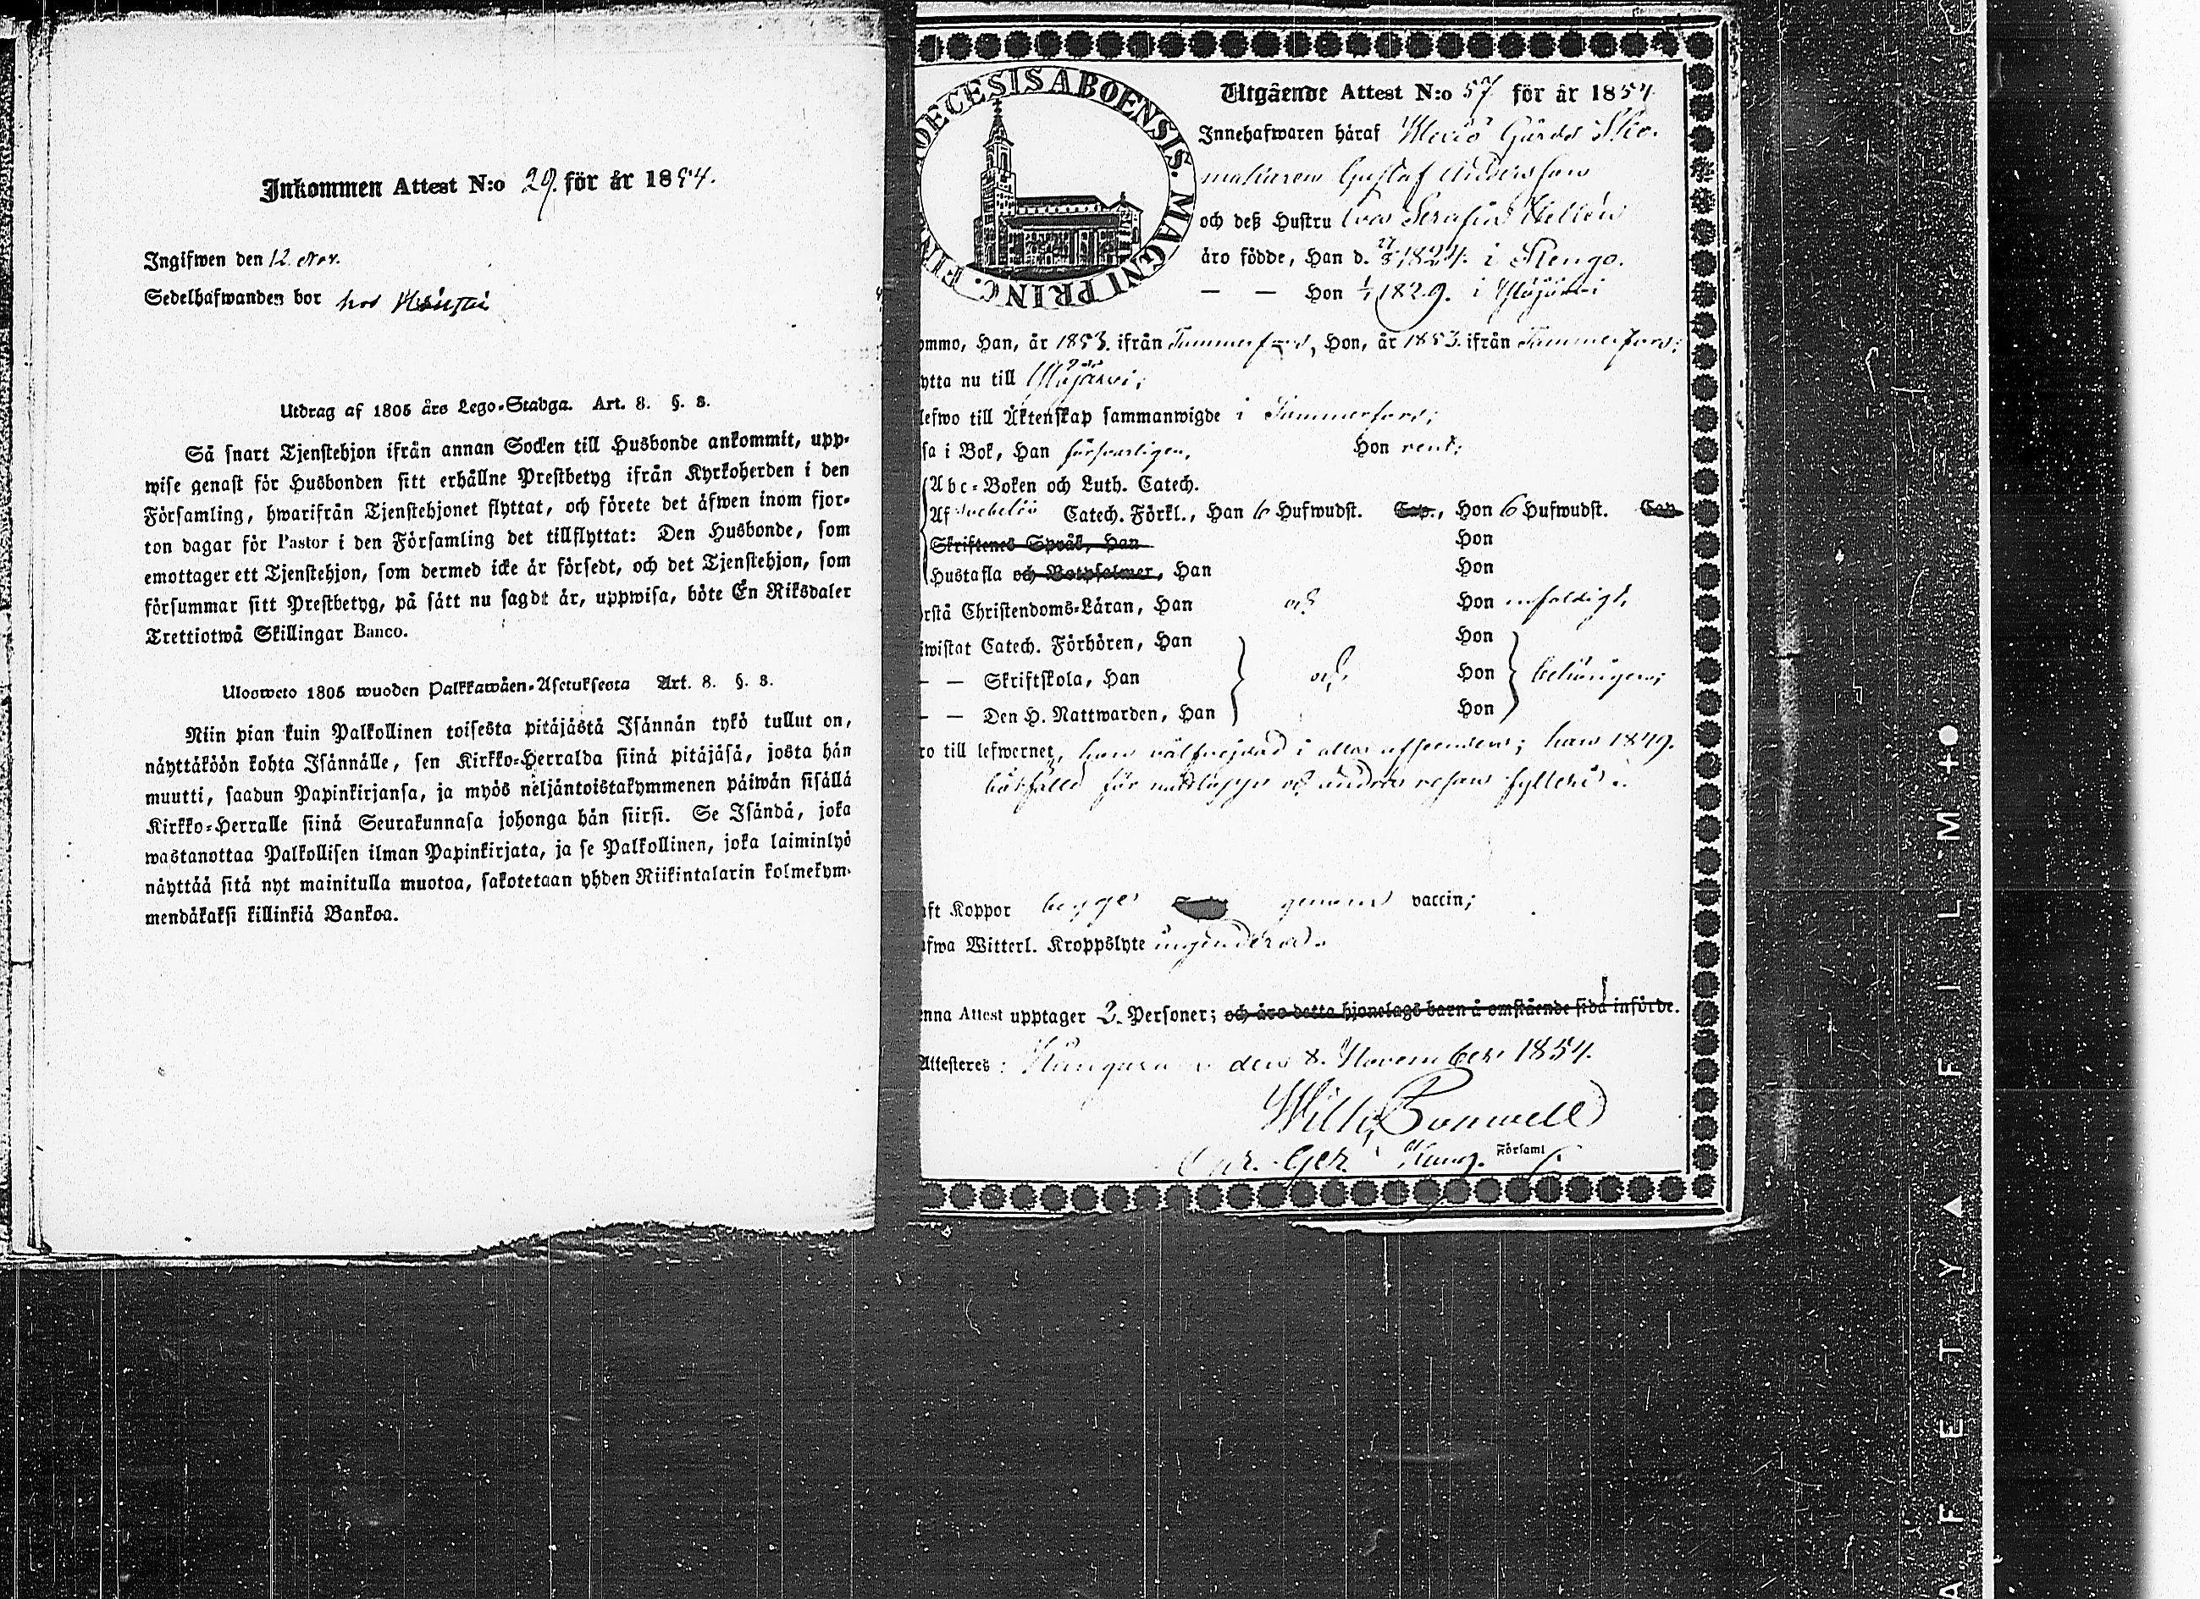 Inkommen Attest N:o 29. för år 1854.
Ingifwen den 12 Nov.
Sedelhafwanden bor hos
Utdrag af 1805 års Lego-Stadga. Art. 8. §. 8.
Så snart Tjenstehjon ifrån annan Socken till Husbonde ankommit, upp-
wise genast för Husbonden sitt erhållne Prestbetyg ifrån Kyrkoherden i den
Församling, hwarifrån Tjenstehjonet flyttat, och förete det äfwen inom fjor-
ton dagar för Pastor i den Församling det tillflyttat: Den Husbonde, som
emottager ett Tjenstehjon, som dermed icke är försedt, och det Tjenstehjon, som
försummar sitt Prestbetyg, på sätt nu sagdt är, uppwisa, böte En Riksdaler
Trettiotwå Skillingar Banco.
Ulosweto 1805 wuoden Palkkawäen-Asetuksesta Art. 8. §. 8.
Niin pian kuin Palkollinen toisesta pitäjästä Isännän tykö tullut on,
näyttäköön kohta Isännälle, sen Kirkko-Herralda siinä pitäjäsä, josta hän
muutti, saadun Papinkirjansa, ja myös neljäntoistakymmenen päiwän sisällä
Kirkko-Herralle siinä Seurakunnasa johonga hän siirsi. Se Isändä, joka
wastanottaa Palkollisen ilman Papinkirjata, ja se Palkollinen, joka laiminlyö
näyttää sitä nyt mainitulla muotoa, sakotetaan yhden Riikintalarin kolmekym-
mendäkaksi killinkiä Bankoa.
OECESIS ABOENSIS. MAGNI PRINC. FIN
Utgående Attest N:o 57 för år 1854
Innehafwaren häraf Gårds Sko-
makaren Gustaf Andersson
och deß Hustru Eva Serafia Hellén
äro födde, Han d. 27/8 1824. i Kengo.
— — Hon 1/1 1829. i Ylöjärvi
ommo, Han, år 1853. ifrån Tammerfors, Hon, år 1853. ifrån Tammerfors;
ytta nu till Ylöjärvi;
lefwo till Äktenskap sammanwigde i Tammerfors;
sa i Bok, Han försvarligen, Hon rent;
Abc-Boken och Luth. Catech.
Af Catech. Förkl., Han 6 Hufwudst. Cap., Hon 6 Hufwudst. Cap
Skriftenes Språk, Han Hon
Hustafla och Botpsalmer, Han Hon
rstå Christendoms-Läran, Han och Hon enfaldigt,
iwistat Catech. Förhören, Han Hon
— — Skriftskola, Han och Hon behörigen;
— — Den H. Nattwarden, Han Hon
ro till lefwernet, han välfrejdad i allas afseenden; han 1849.
bötfälld för och andra resan fylleri.
aft Koppor begge genom vaccin;
afwa Witterl. Kroppslyte ingendera.
enna Attest upptager 2. Personer; och äro detta hjonelags barn å omstående sida införde.
Attesteres: Kangasala den 8. November 1854.
Församl
A F E T Y ▲ F I L M +●